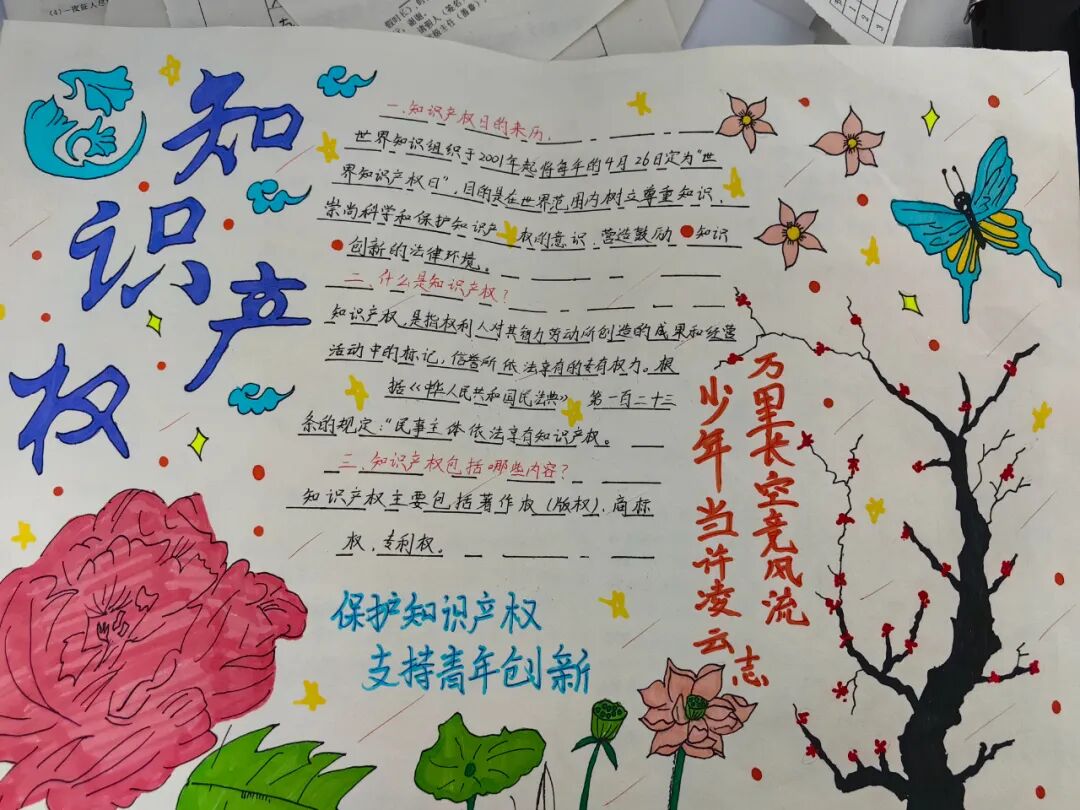 知识产权
一.知识产权日的来历.
世界知识组织于2001年起将每年的4月26日定为"世
界知识产权日",目的是在世界范围内树立尊重知识,
崇尚科学和保护知识产权的意识,营造鼓励 知识
创新的法律环境。
二.什么是知识产权?
知识产权,是指权利人对其智力劳动所创造的成果和经营
活动中的标记,信誉所依法享有的专有权力。根
括《中华人民共和国民法典》 第一百二十三
条的规定:"民事主体依法享有知识产权。
三.知识产权包括哪些内容?
知识产权主要包括著作权(版权)、商标
权、专利权。
保护知识产权
支持青年创新
少年当许凌云志
万里长空竞风流